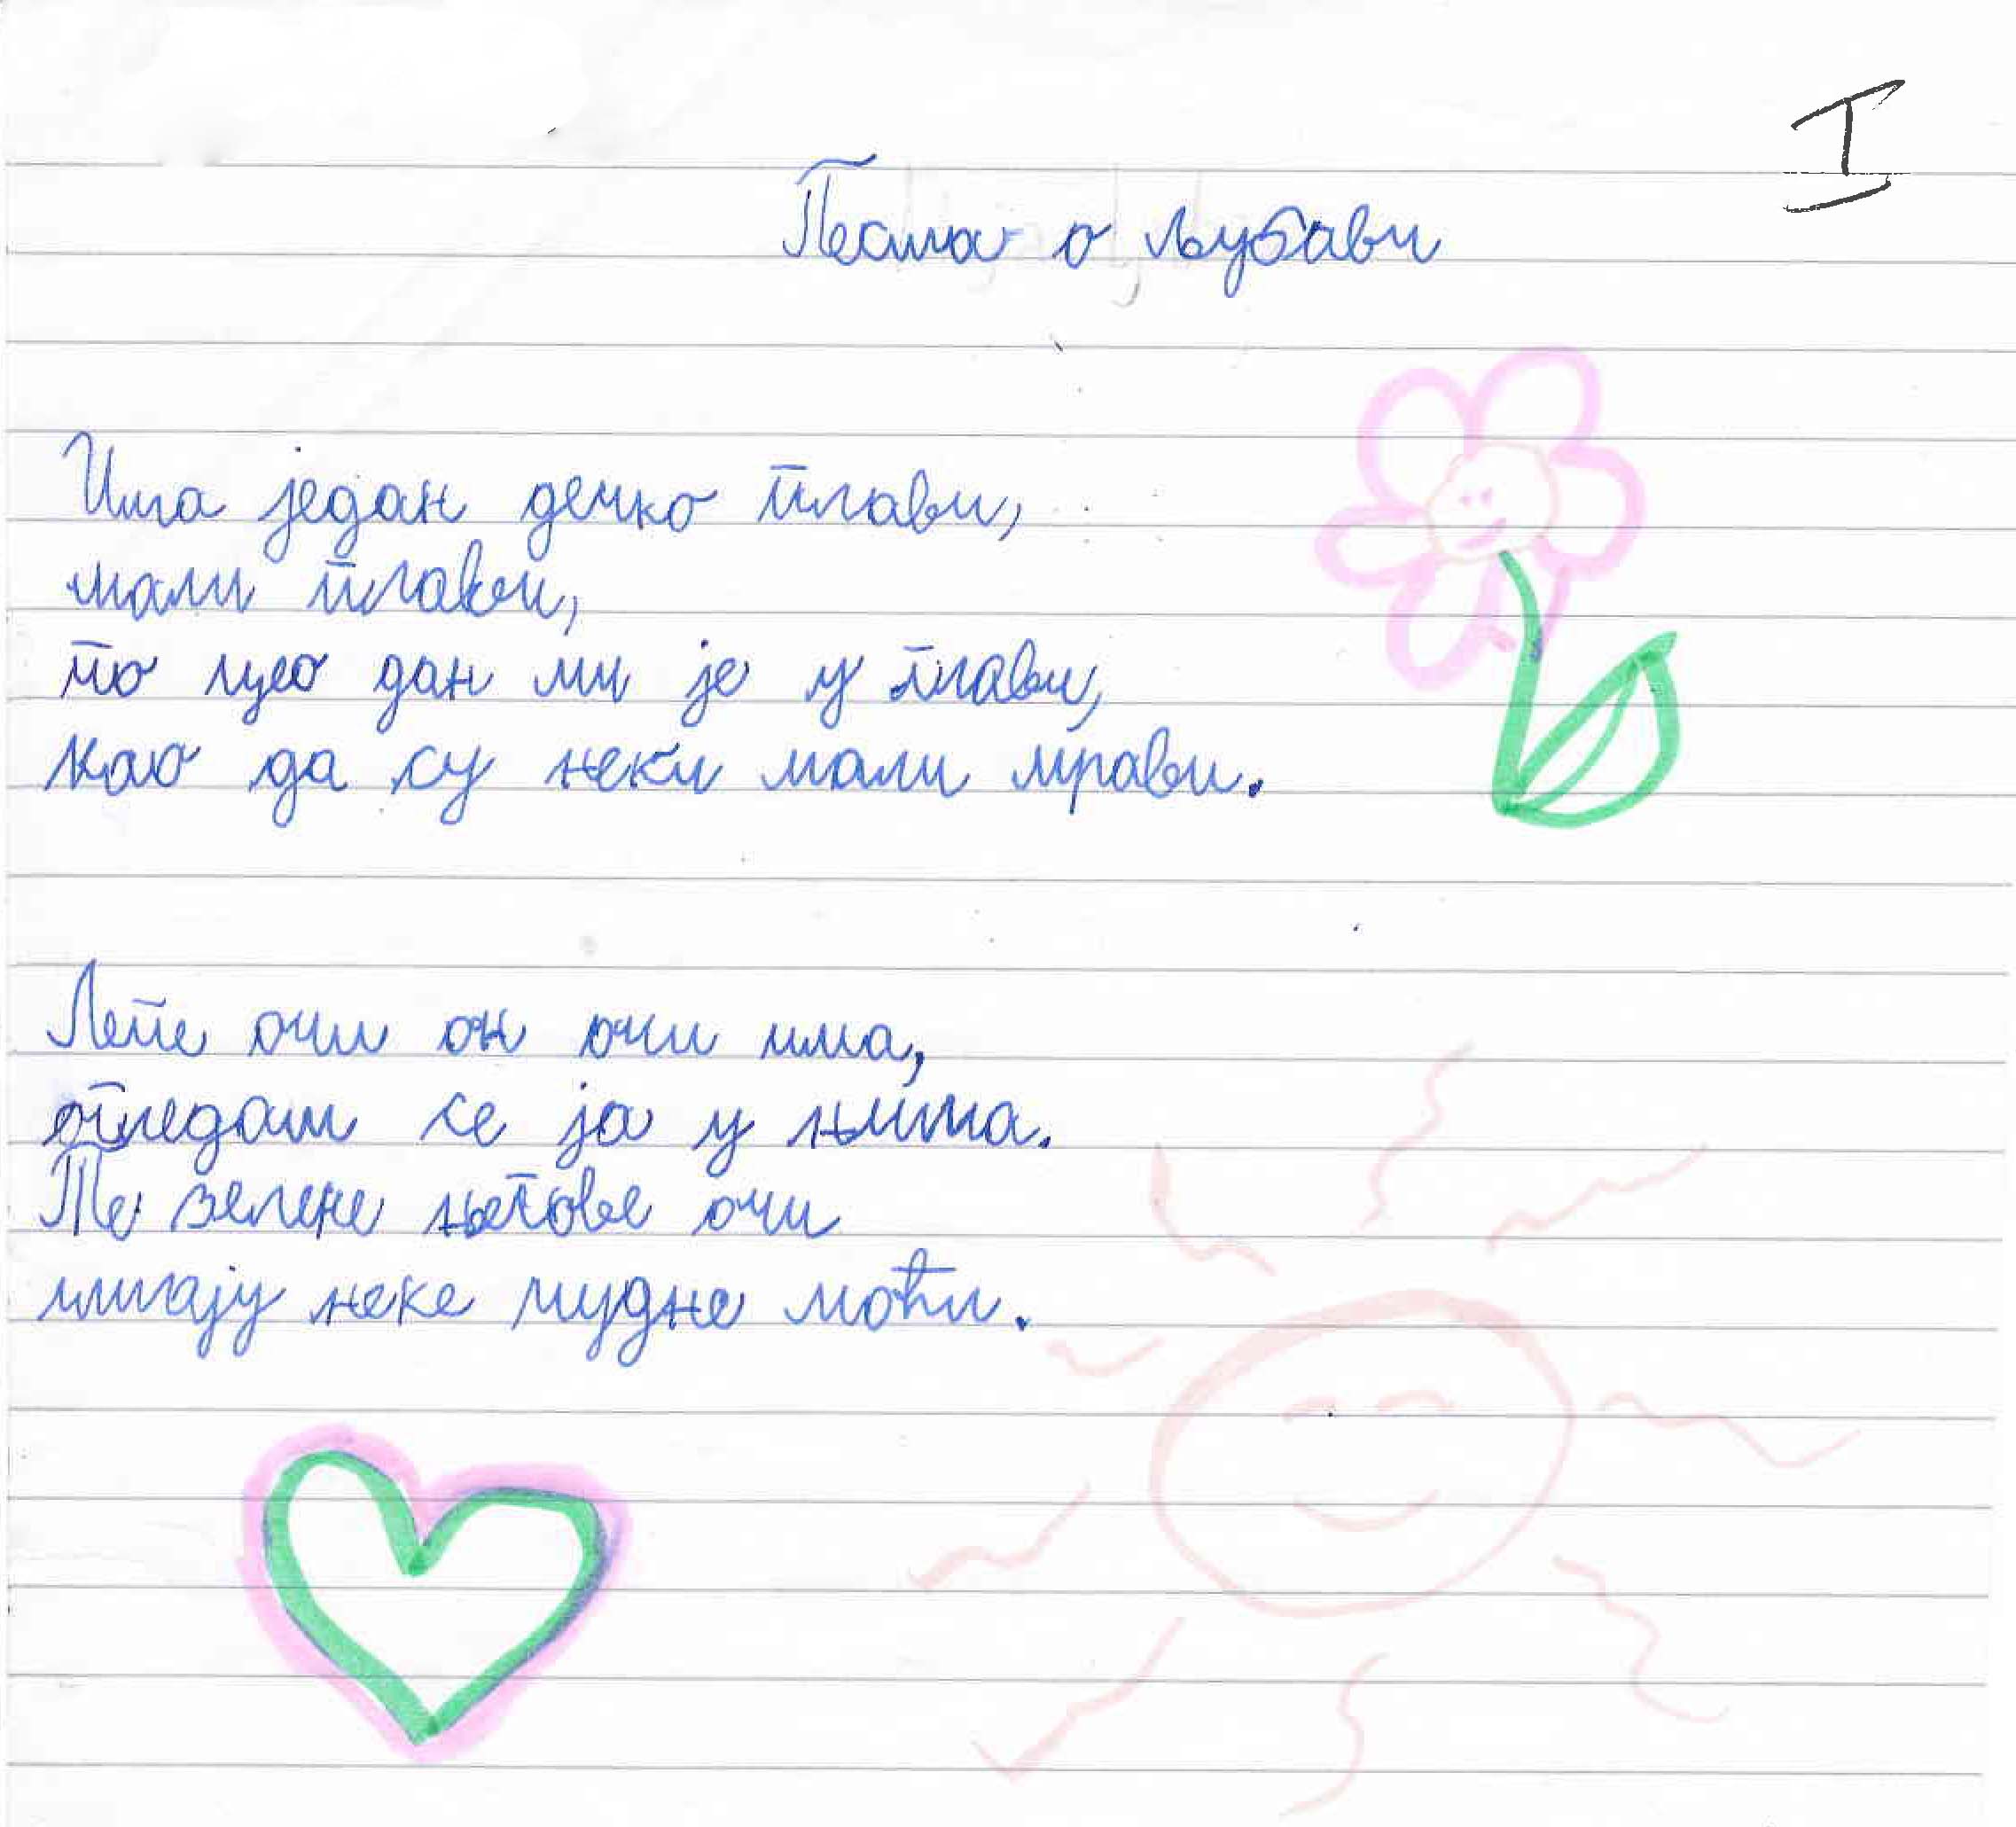 I
Песма о љубави
Има један дечко плави,
мали плави,
по цео дан ми је у глави,
као да су неки мали мрави.
Лепе очи он очи има,
огледам се ја у њима.
Те зелене његове очи
имају неке чудне моћи.